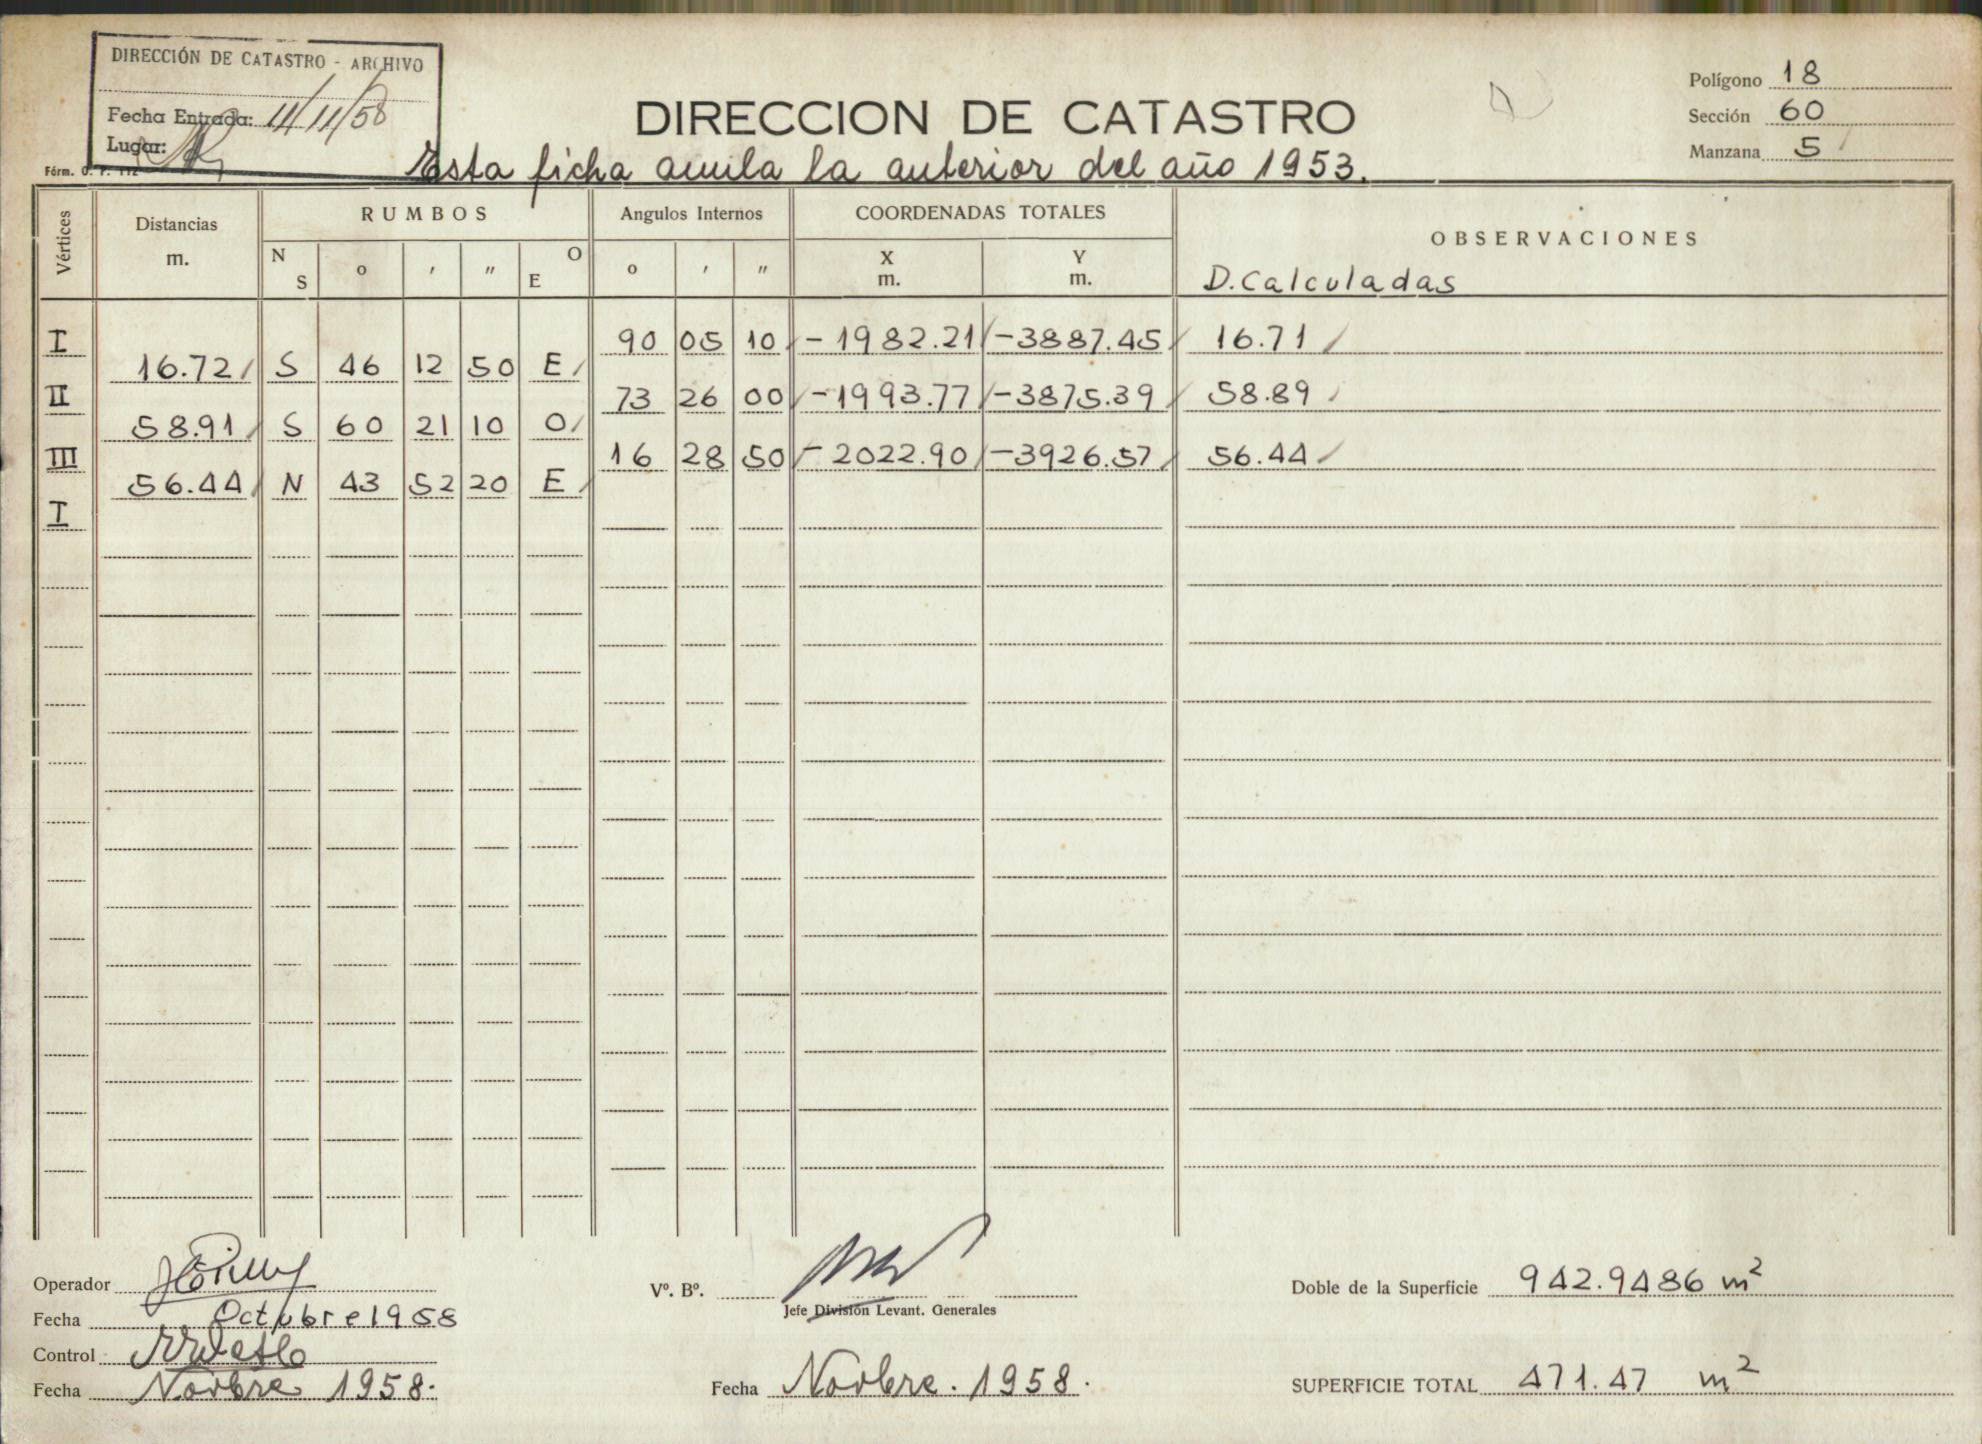 DIRECCIÓN DE CATASTRO - ARCHIVO
Fecha Entrada: 11/11/58
Lugar:
Fórm. O. P. 112
DIRECCION DE CATASTRO
Esta ficha anula la anterior del año 1953.
Polígono 18
Sección 60
Manzana 5
Vértices Distancias m. RUMBOS Angulos Internos COORDENADAS TOTALES OBSERVACIONES
N S o ' " O E o ' " X m. Y m. D. Calculadas
I 90 05 10 -1982.21 -3887.45 16.71
16.72 S 46 12 50 E
II 73 26 00 -1993.77 -3875.39 58.89
58.91 S 60 21 10 O
III 16 28 50 -2022.90 -3926.57 56.44
56.44 N 43 52 20 E
I
Operador
Fecha Octubre 1958
Control
Fecha Novbre 1958.
Vº. Bº.
Jefe División Levant. Generales
Fecha Novbre. 1958.
Doble de la Superficie 942.9486 m²
SUPERFICIE TOTAL 471.47 m²